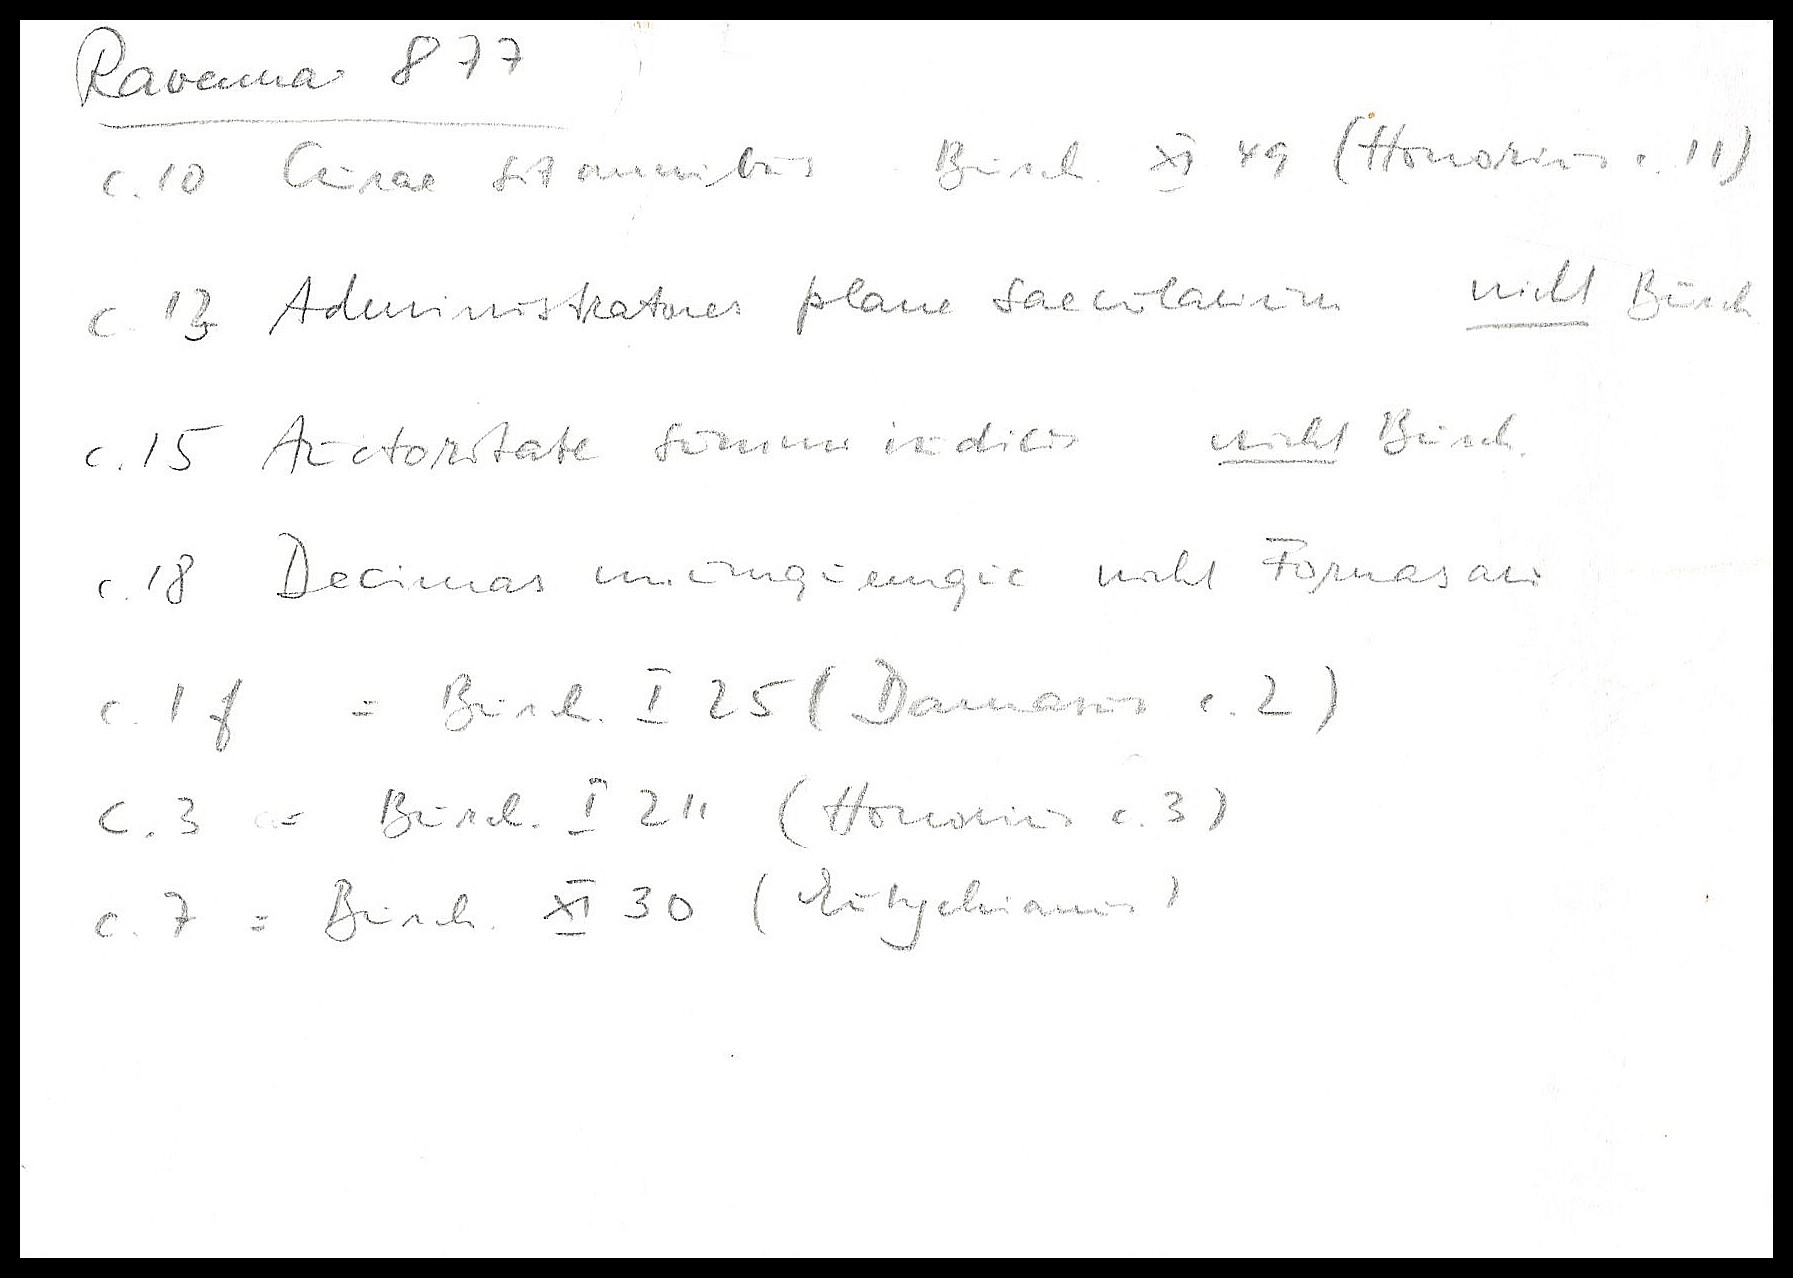 Ravenna 877
c. 10 Curae sit omnibus Burch. XI 49 (Honorius c. 11)
c. 13 Administratores plane saecularium nicht Burch
c. 15 Auctoritate summi iudicis nicht Burch.
c. 18 Decimas nicht Fornasari
c. 1 f = Burch. I 25 (Damasus c. 2)
c. 3 = Burch. I 211 (Honorius c. 3)
c. 7 = Burch. XI 30 (Eutychianus)